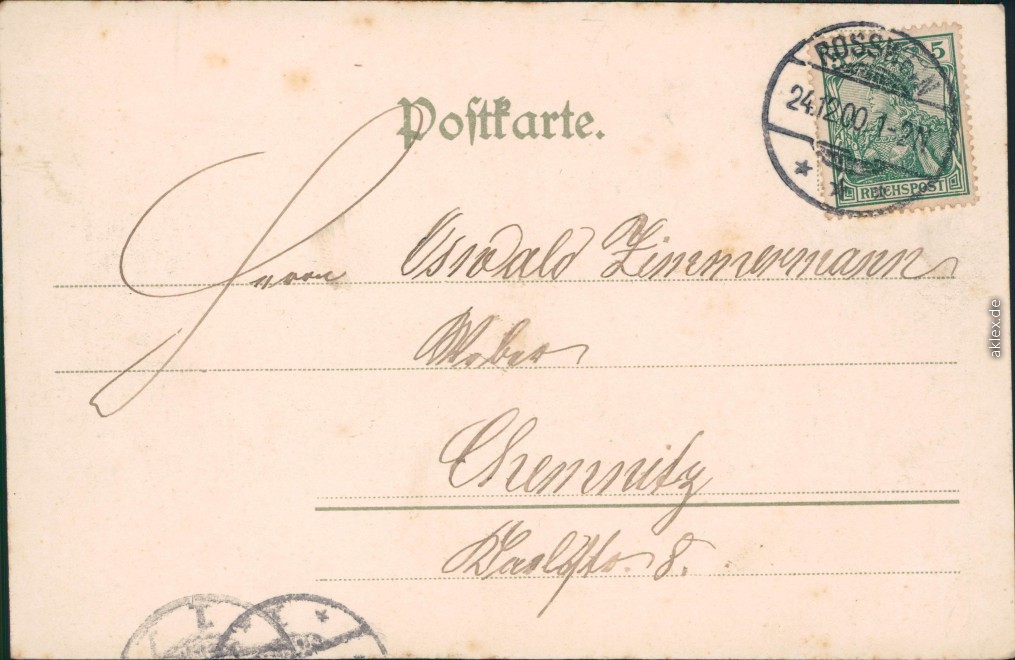 Postkarte.
5
24.12.00. 1-2N.
REICHSPOST
Herrn Oswald Zimmermann
Weber
Chemnitz
Karlstr. 8.
aklex.de